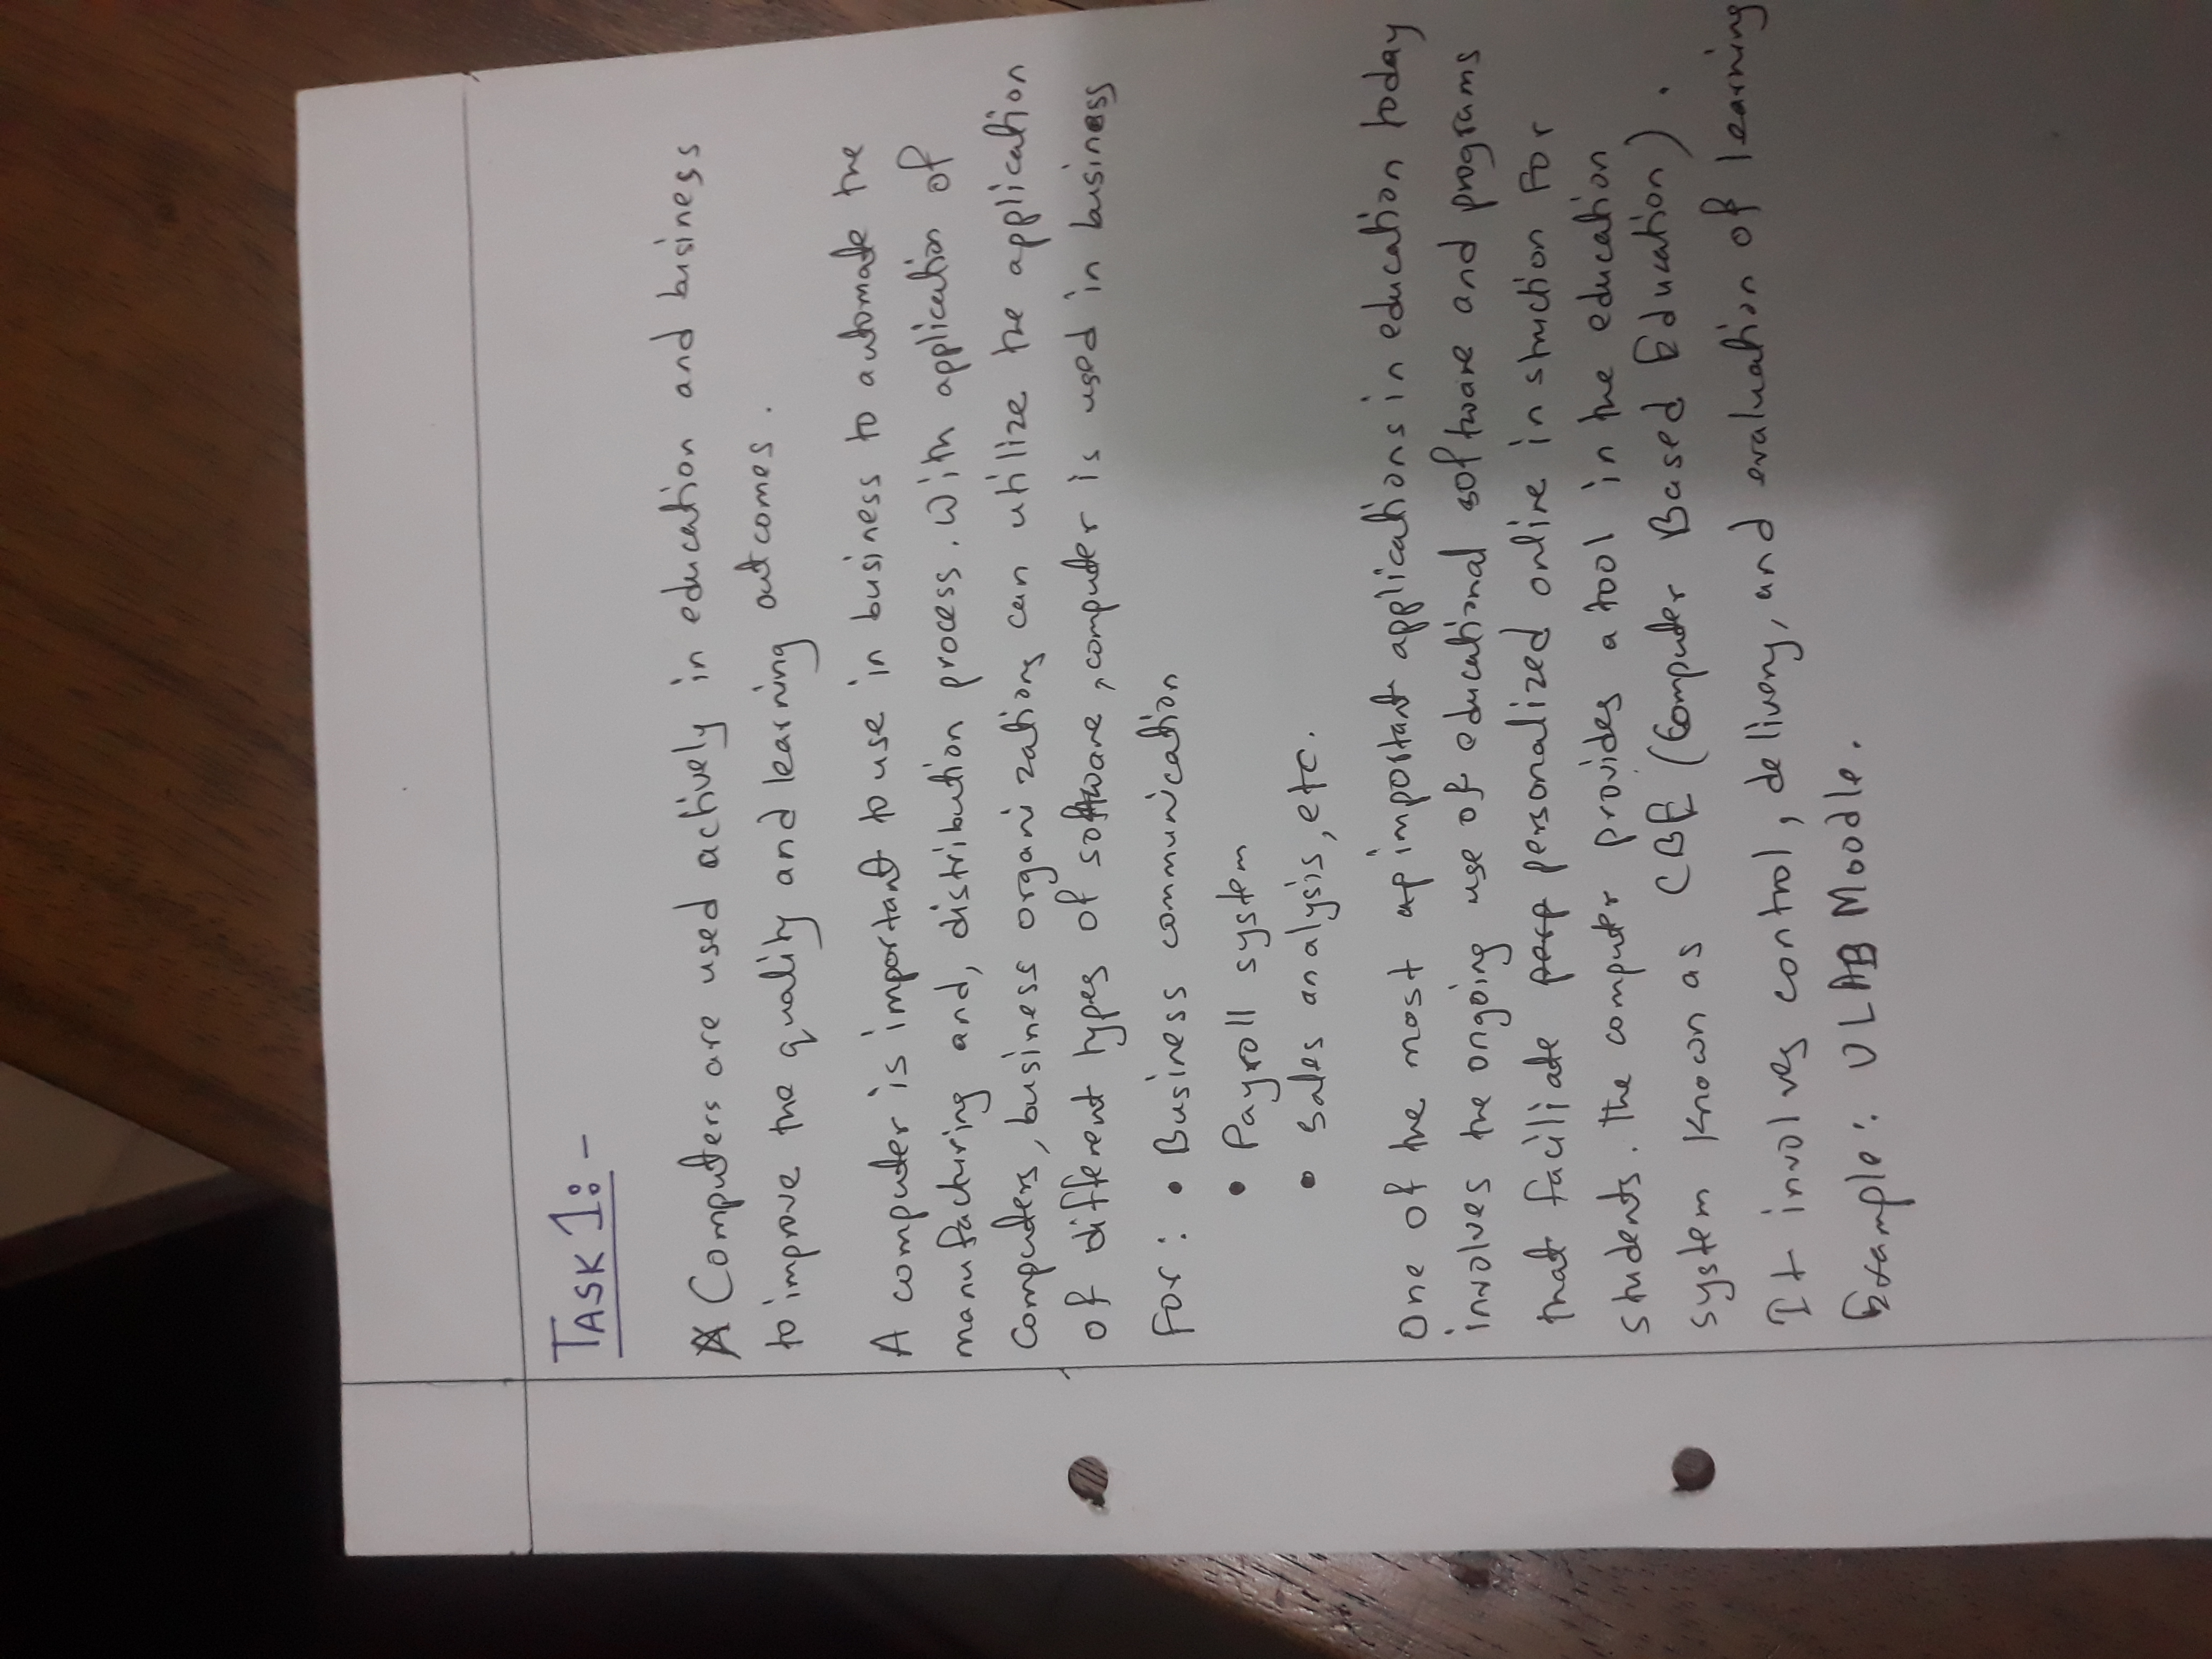 TASK 1: -
A Computers are used actively in education and business
to improve the quality and learning outcomes.
A computer is important to use in business to automate the
manufacturing and, distribution process. With application of
computers, business organizations can utilize the application
of different types of software, computer is used in business
For: • Business communication
• Payroll system
• Sales analysis, etc.
One of the most ap important applications in education today
involves the ongoing use of educational software and programs
that faciliate perp personalized online instruction For
students. The computer provides a tool in the education
system known as CBE (Computer Based Education).
It involves control, delivery, and evaluation of learning
Example: ULAB Moodle.